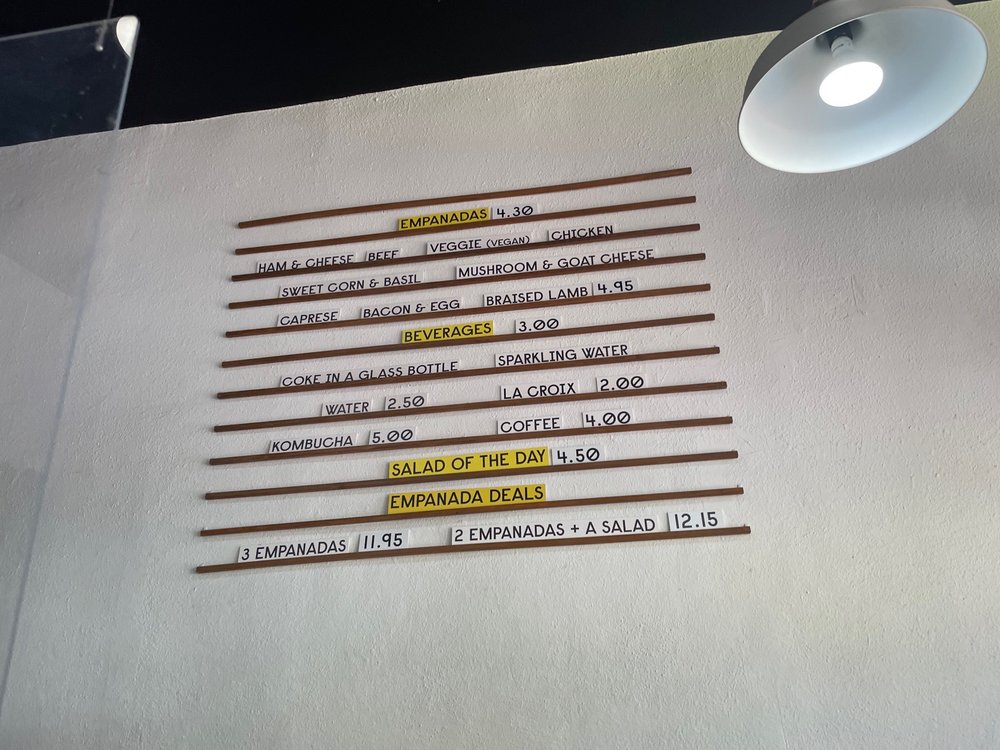 EMPANADAS 4.30
HAM & CHEESE BEEF VEGGIE (VEGAN) CHICKEN
SWEET CORN & BASIL MUSHROOM & GOAT CHEESE
CAPRESE BACON & EGG BRAISED LAMB 4.95
BEVERAGES 3.00
COKE IN A GLASS BOTTLE SPARKLING WATER
WATER 2.50 LA CROIX 2.00
KOMBUCHA 5.00 COFFEE 4.00
SALAD OF THE DAY 4.50
EMPANADA DEALS
3 EMPANADAS 11.95 2 EMPANADAS + A SALAD 12.15